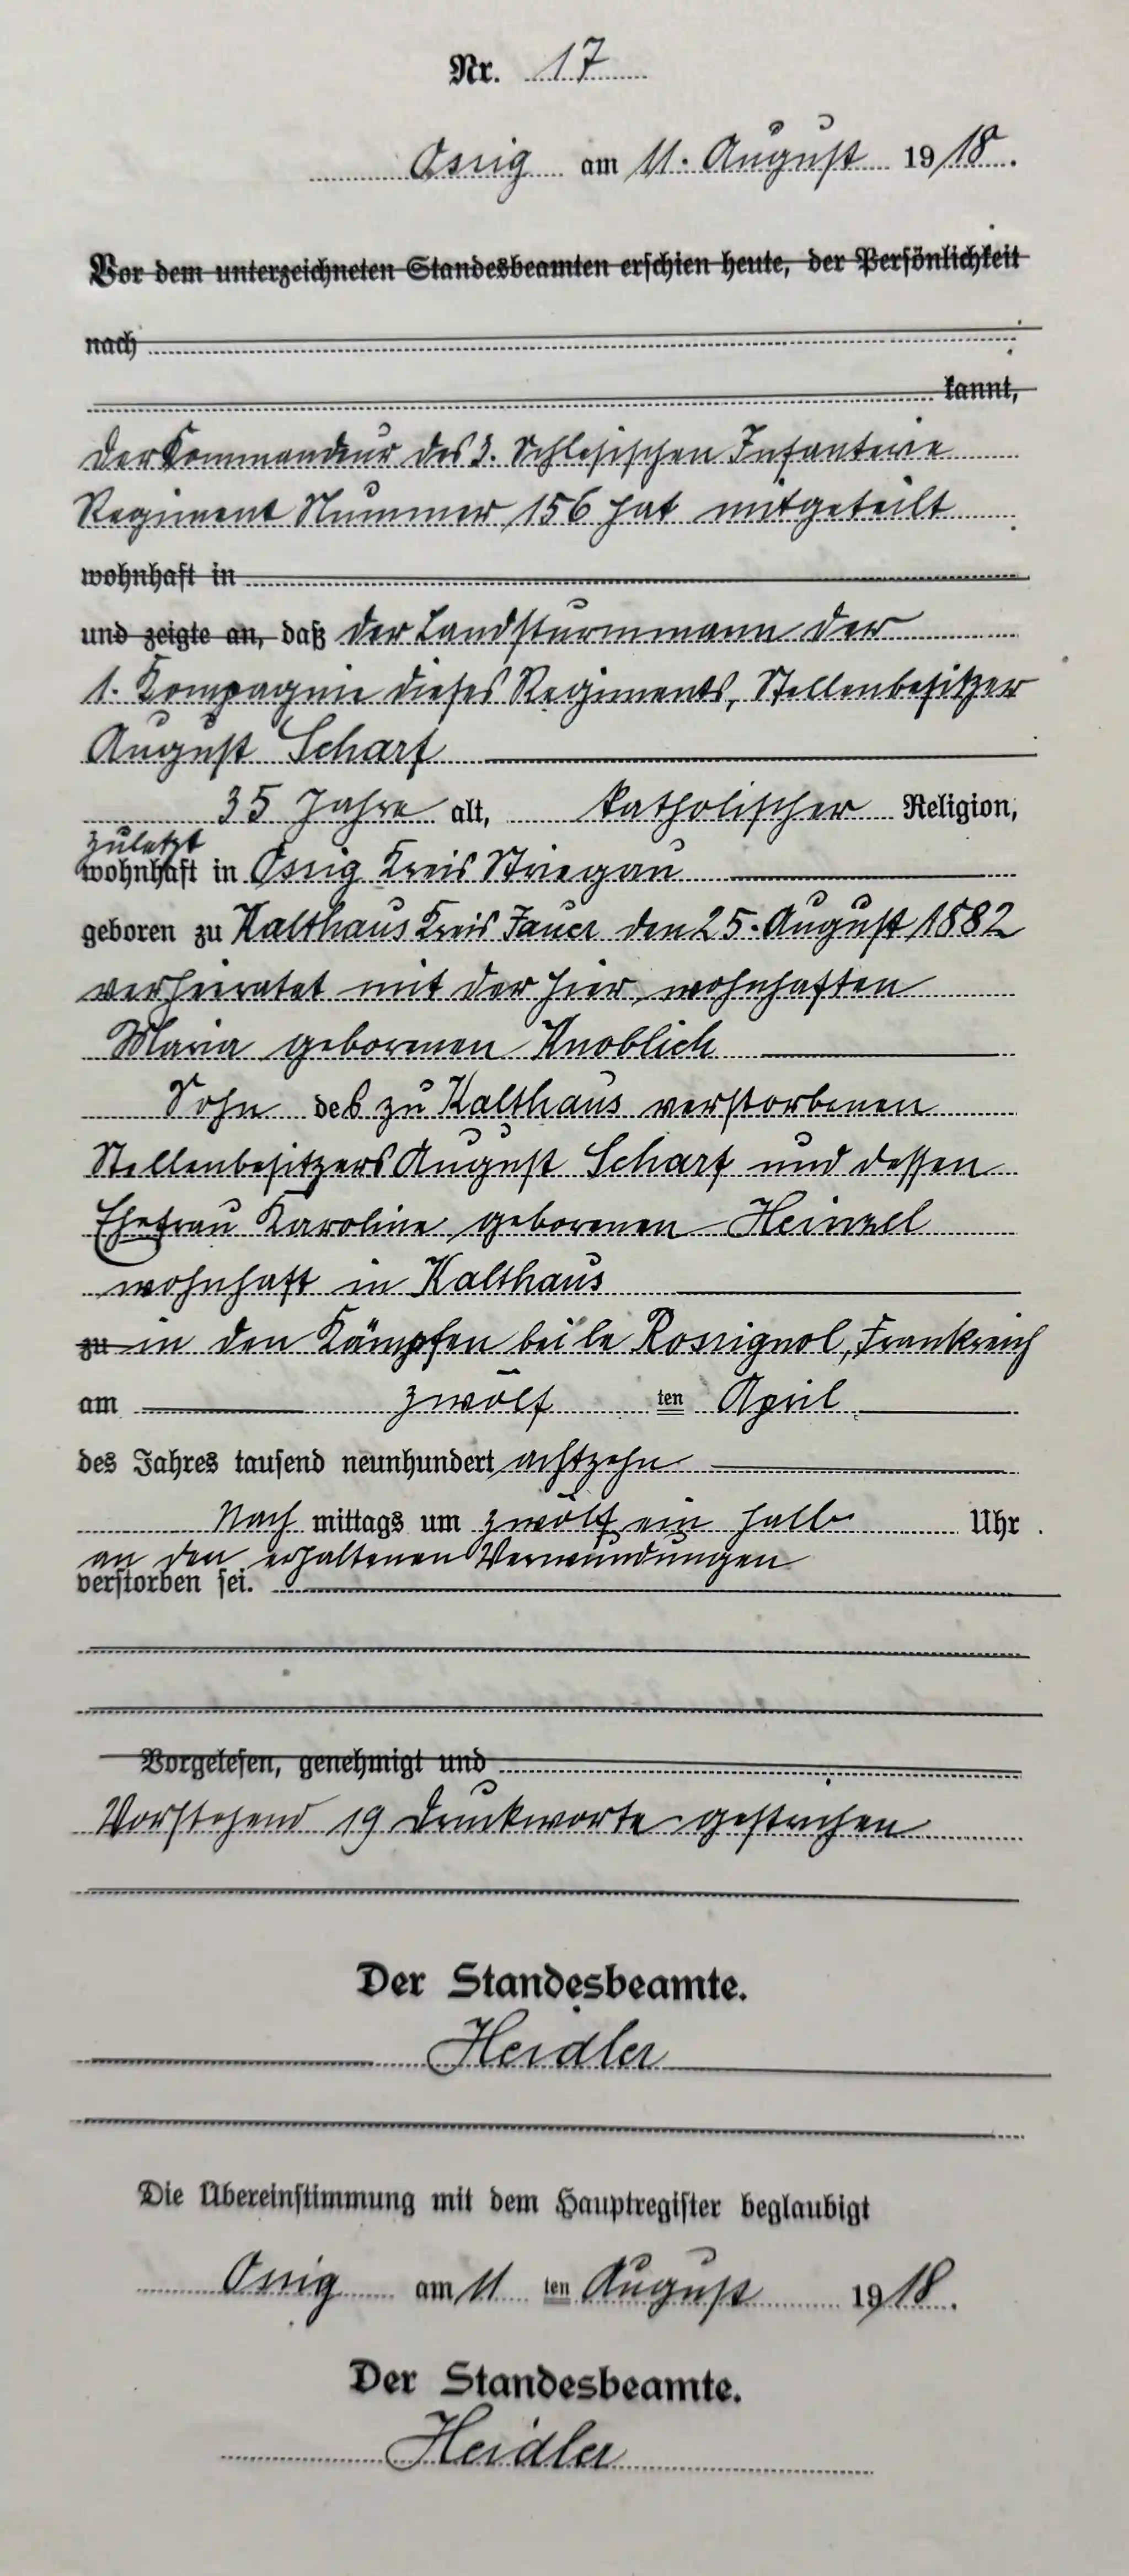 Nr. 17
Ossig am 11. August 1918.
Vor dem unterzeichneten Standesbeamten erschien heute, der Persönlichkeit
nach
kannt,
der Kommandeur des 3. Schlesischen Infanterie
Regiment Nummer 156 hat mitgeteilt
wohnhaft in
und zeigte an, daß der Landsturmmann der
1. Kompagnie dieses Regiments, Stellenbesitzer
August Scharf
35 Jahre alt, katholischer Religion,
zuletzt
wohnhaft in Ossig Kreis Striegau
geboren zu Kalthaus Kreis Jauer den 25. August 1882
verheiratet mit der hier wohnhaften
Maria geborenen Knoblich
Sohn des zu Kalthaus verstorbenen
Stellenbesitzers August Scharf und dessen
Ehefrau Karoline geborenen Heinzel
wohnhaft in Kalthaus
zu in den Kämpfen bei le Rossignol, Frankreich
am zwölf ten April
des Jahres tausend neunhundert achtzehn
Nach mittags um zwölf ein halb Uhr
an den erhaltenen Verwundungen
verstorben sei.
Vorgelesen, genehmigt und
Vorstehend 19 Druckworte gestrichen
Der Standesbeamte.
Heidler
Die Übereinstimmung mit dem Hauptregister beglaubigt
Ossig am 11 ten August 1918.
Der Standesbeamte.
Heidler